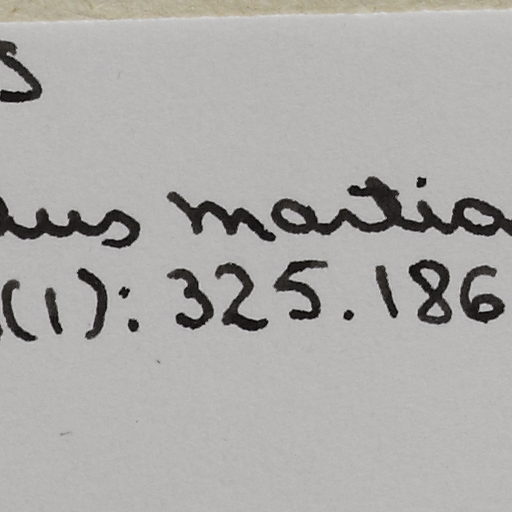 s
hus martia
(1): 325.186